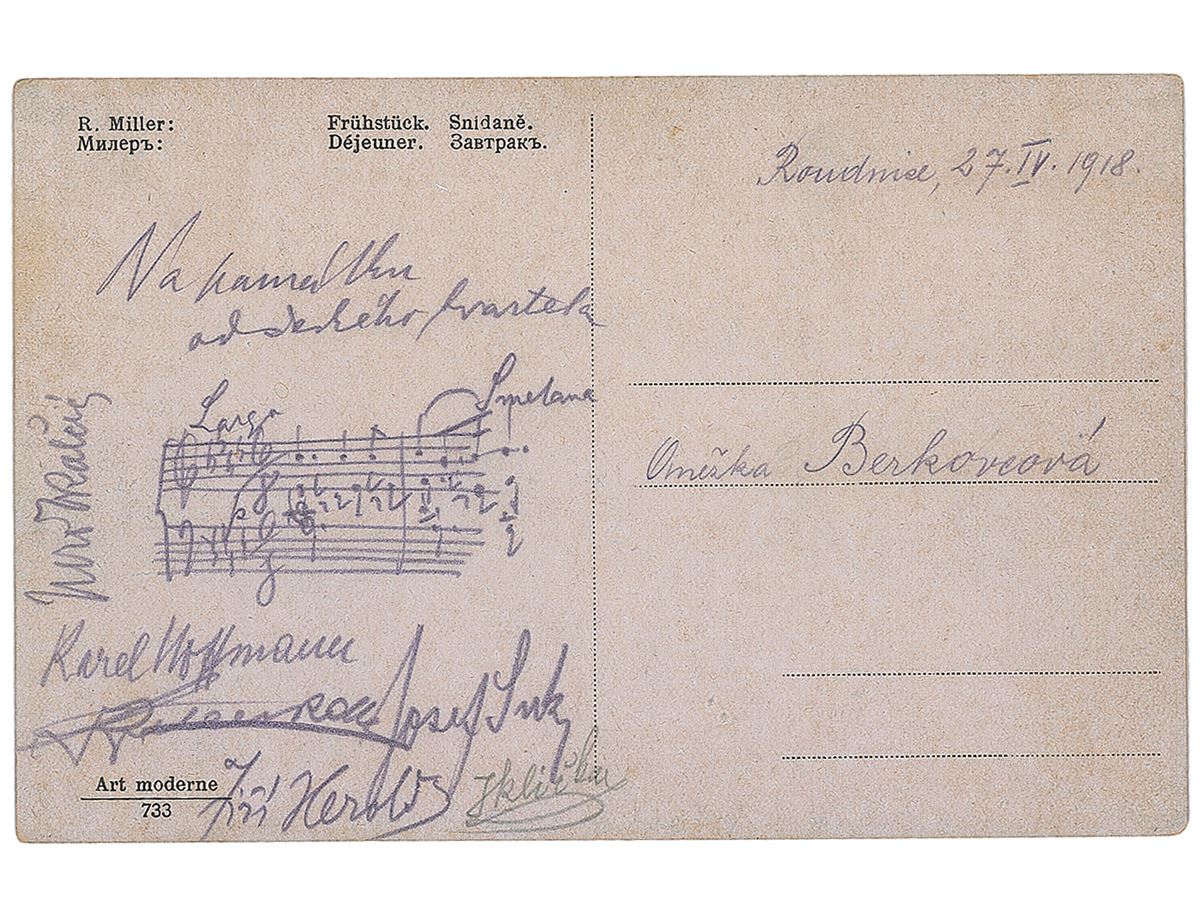 R. Miller: Frühstück. Snídaně.
Милеръ: Déjeuner. Завтракъ.
Roudnice, 27. IV. 1918.
Na památku
od českého kvarteta
Largo
Smetana
Anežka Berkovcová
Karel Hoffmann
Josef Suk
Jiří Herold
Art moderne
733